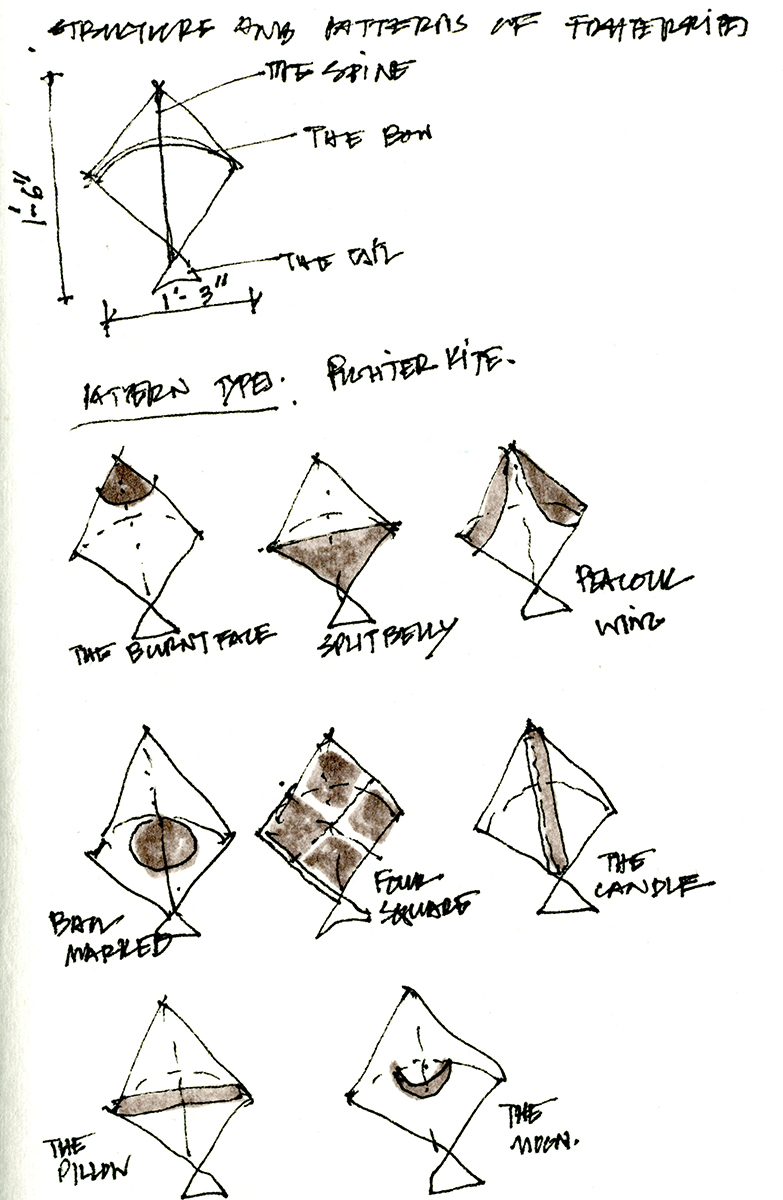 STRUCTURE AND PATTERNS OF FIGHTERKITES
THE SPINE
THE BOW
1'-9"
THE TAIL
1'-3"
PATTERN TYPES. FIGHTER KITE.
THE BURNT FACE
SPLIT BELLY
PEACOCK
WING
BALL
MARKED
FOUR
SQUARE
THE
CANDLE
THE
PILLOW
THE
MOON.